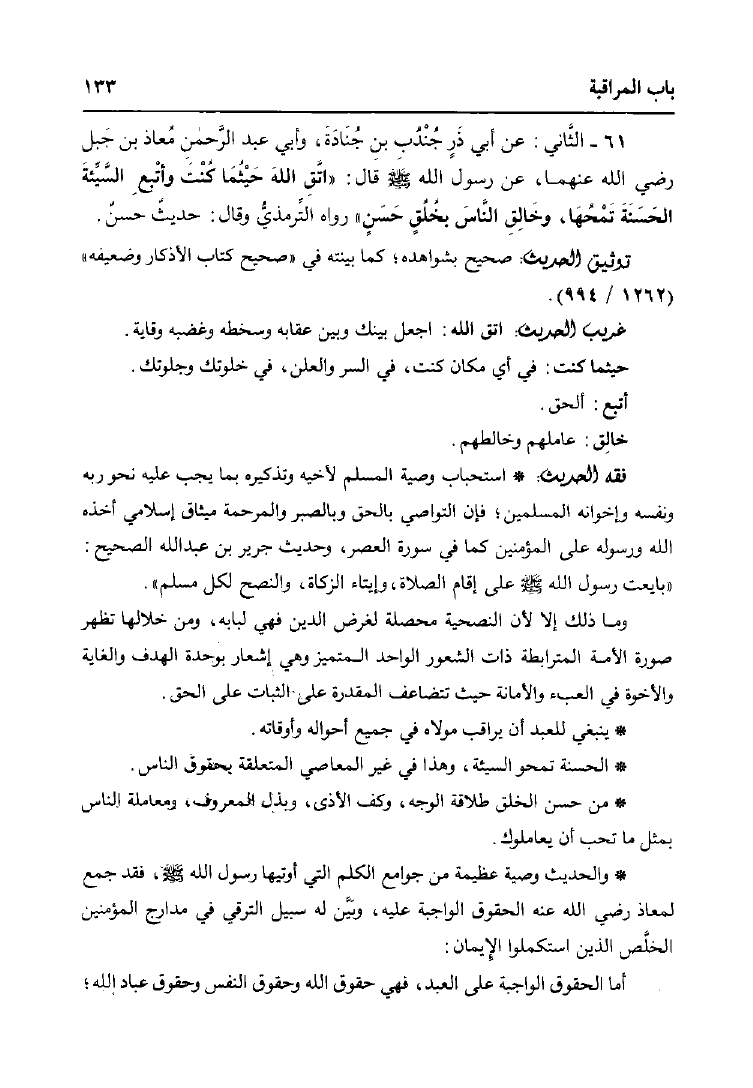 باب المراقبة ١٣٣
٦١ - الثَّاني : عن أبي ذَرٍ جُنْدُبِ بنِ جُنَادَةَ، وأبي عبد الرَّحمٰنِ مُعاذ بن جَبل
رضي الله عنهمـا، عن رسول الله ﷺ قال: «اتَّقِ اللهَ حَيْثُمَا كُنْتَ وأَتْبِعِ السَّيِّئَةَ
الحَسَنَةَ تَمْحُهَا، وخَالِقِ النَّاسَ بِخُلُقٍ حَسَنٍ» رواه التِّرمذيُّ وقال: حديثٌ حسنٌ.
توثيق الحديث: صحيح بشواهده؛ كما بينته في «صحيح كتاب الأذكار وضعيفه»
(١٢٦٢ / ٩٩٤).
غريب الحديث: اتق الله : اجعل بينك وبين عقابه وسخطه وغضبه وقاية.
حيثما كنت : في أي مكان كنت، في السر والعلن، في خلوتك وجلوتك.
أتبع : ألحق.
خالق : عاملهم وخالطهم.
فقه الحديث: * استحباب وصية المسلم لأخيه وتذكيره بما يجب عليه نحو ربه
ونفسه وإخوانه المسلمين؛ فإن التواصي بالحق وبالصبر والمرحمة ميثاق إسلامي أخذه
الله ورسوله على المؤمنين كما في سورة العصر، وحديث جرير بن عبدالله الصحيح :
«بايعت رسول الله ﷺ على إقام الصلاة، وإيتاء الزكاة، والنصح لكل مسلم».
ومـا ذلك إلا لأن النصحية محصلة لغرض الدين فهي لبابه، ومن خلالها تظهر
صورة الأمـة المترابطة ذات الشعور الواحد المـتميز وهي إشعار بوحدة الهدف والغاية
والأخوة في العبء والأمانة حيث تتضاعف المقدرة على الثبات على الحق.
* ينبغي للعبد أن يراقب مولاه في جميع أحواله وأوقاته.
* الحسنة تمحو السيئة، وهذا في غير المعاصي المتعلقة بحقوق الناس.
* من حسن الخلق طلاقة الوجه، وكف الأذى، وبذل المعروف، ومعاملة الناس
بمثل ما تحب أن يعاملوك.
* والحديث وصية عظيمة من جوامع الكلم التي أوتيها رسول الله ﷺ، فقد جمع
لمعاذ رضي الله عنه الحقوق الواجبة عليه، وبيَّن له سبيل الترقي في مدارج المؤمنين
الخلَّص الذين استكملوا الإيمان:
أما الحقوق الواجبة على العبد، فهي حقوق الله وحقوق النفس وحقوق عباد الله؛